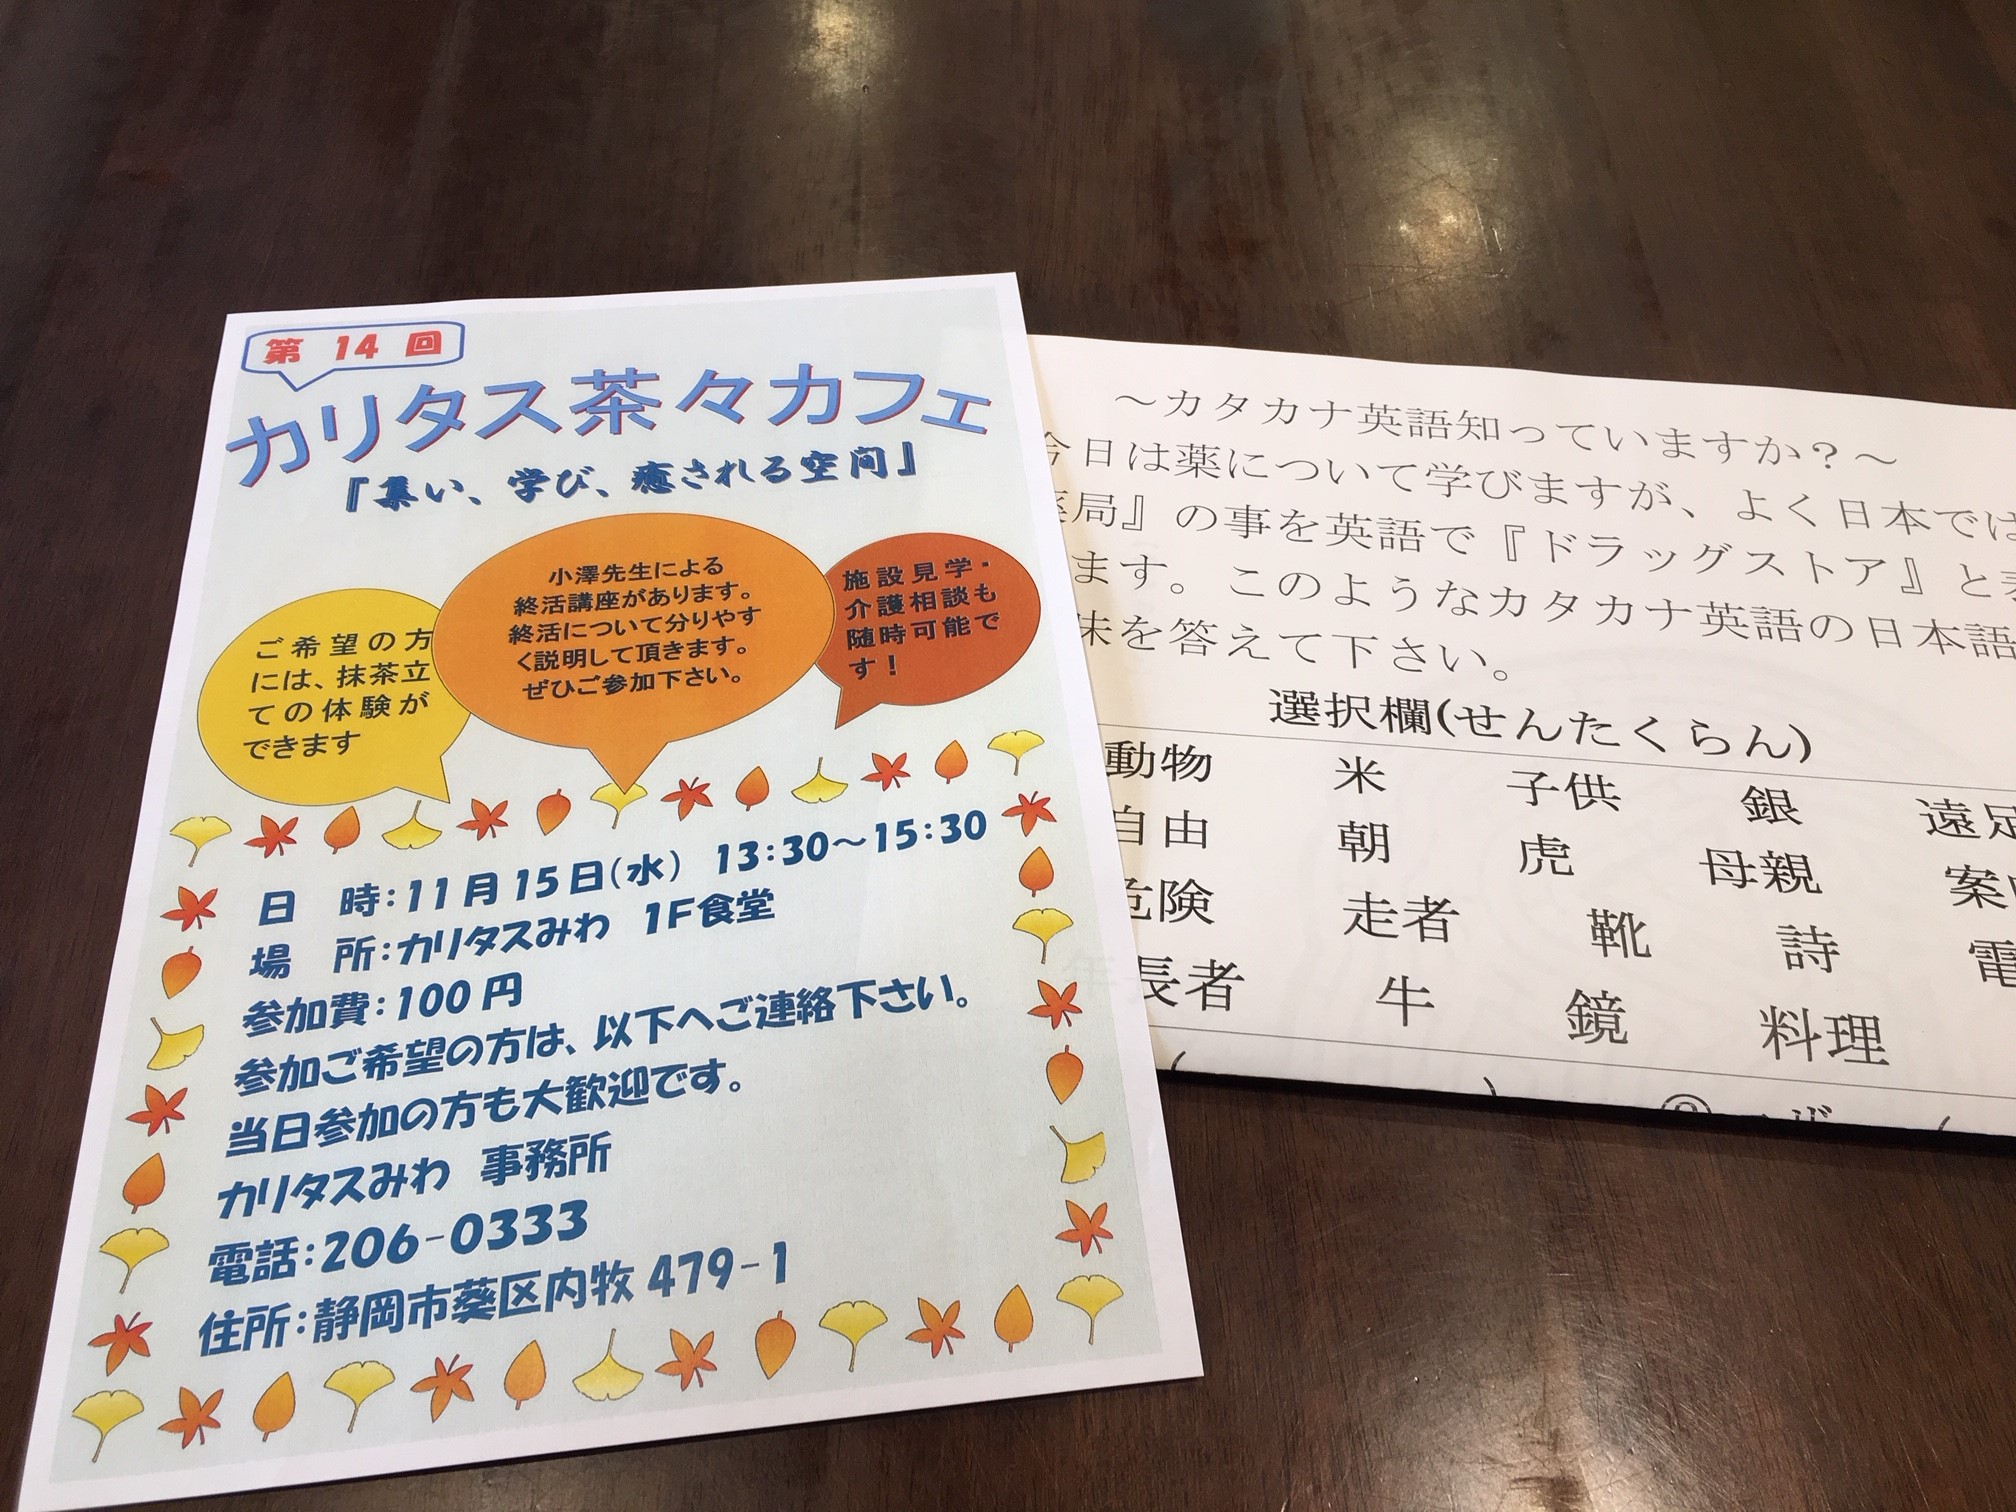 第 14 回
カリタス茶々カフェ
『集い、学び、癒される空间』
ご希望の方
には、抹茶立
ての体験が
できます
小澤先生による
終活講座があります。
終活について分りやす
く説明して頂きます。
ぜひご参加下さい。
施設見学・
介護相談も
随時可能で
す！
日 時：11月15日（水） 13：30～15：30
場 所：カリタスみわ 1F食堂
参加費：100円
参加ご希望の方は、以下へご連絡下さい。
当日参加の方も大歓迎です。
カリタスみわ 事務所
電話：206-0333
住所：静岡市葵区内牧479-1
～カタカナ英語知っていますか？～
今日は薬について学びますが、よく日本では
局』の事を英語で『ドラッグストア』と
ます。このようなカタカナ英語の日本語
味を答えて下さい。
選択欄(せんたくらん)
動物 米 子供 銀 遠足
自由 朝 虎 母親 案
危険 走者 靴 詩 電
長者 牛 鏡 料理